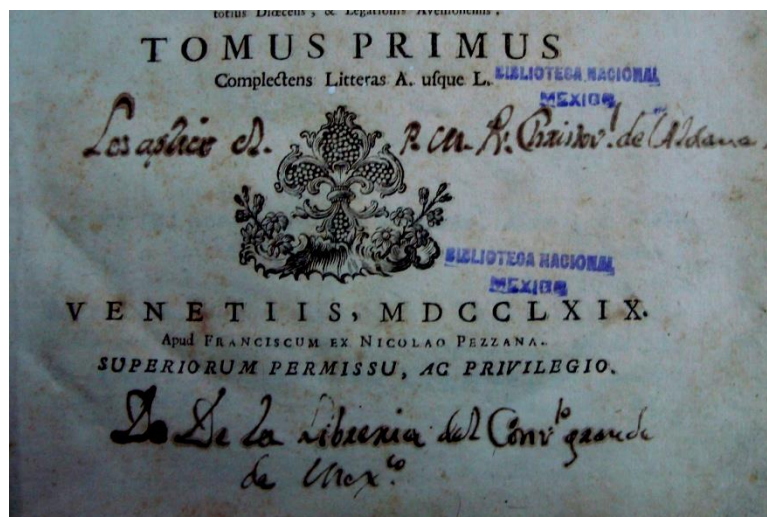 totius Diœcesis, & Legationis Avenionensis.
TOMUS PRIMUS
Complectens Litteras A. usque L.
BIBLIOTECA NACIONAL
MEXICO
Los aplico el. P. M. Fr. Christov.l de Aldana.
BIBLIOTECA NACIONAL
MEXICO
VENETIIS, MDCCLXIX.
Apud FRANCISCUM EX NICOLAO PEZZANA.
SUPERIORUM PERMISSU, AC PRIVILEGIO.
De La Libreria del Conv.to grande
de Mex.co